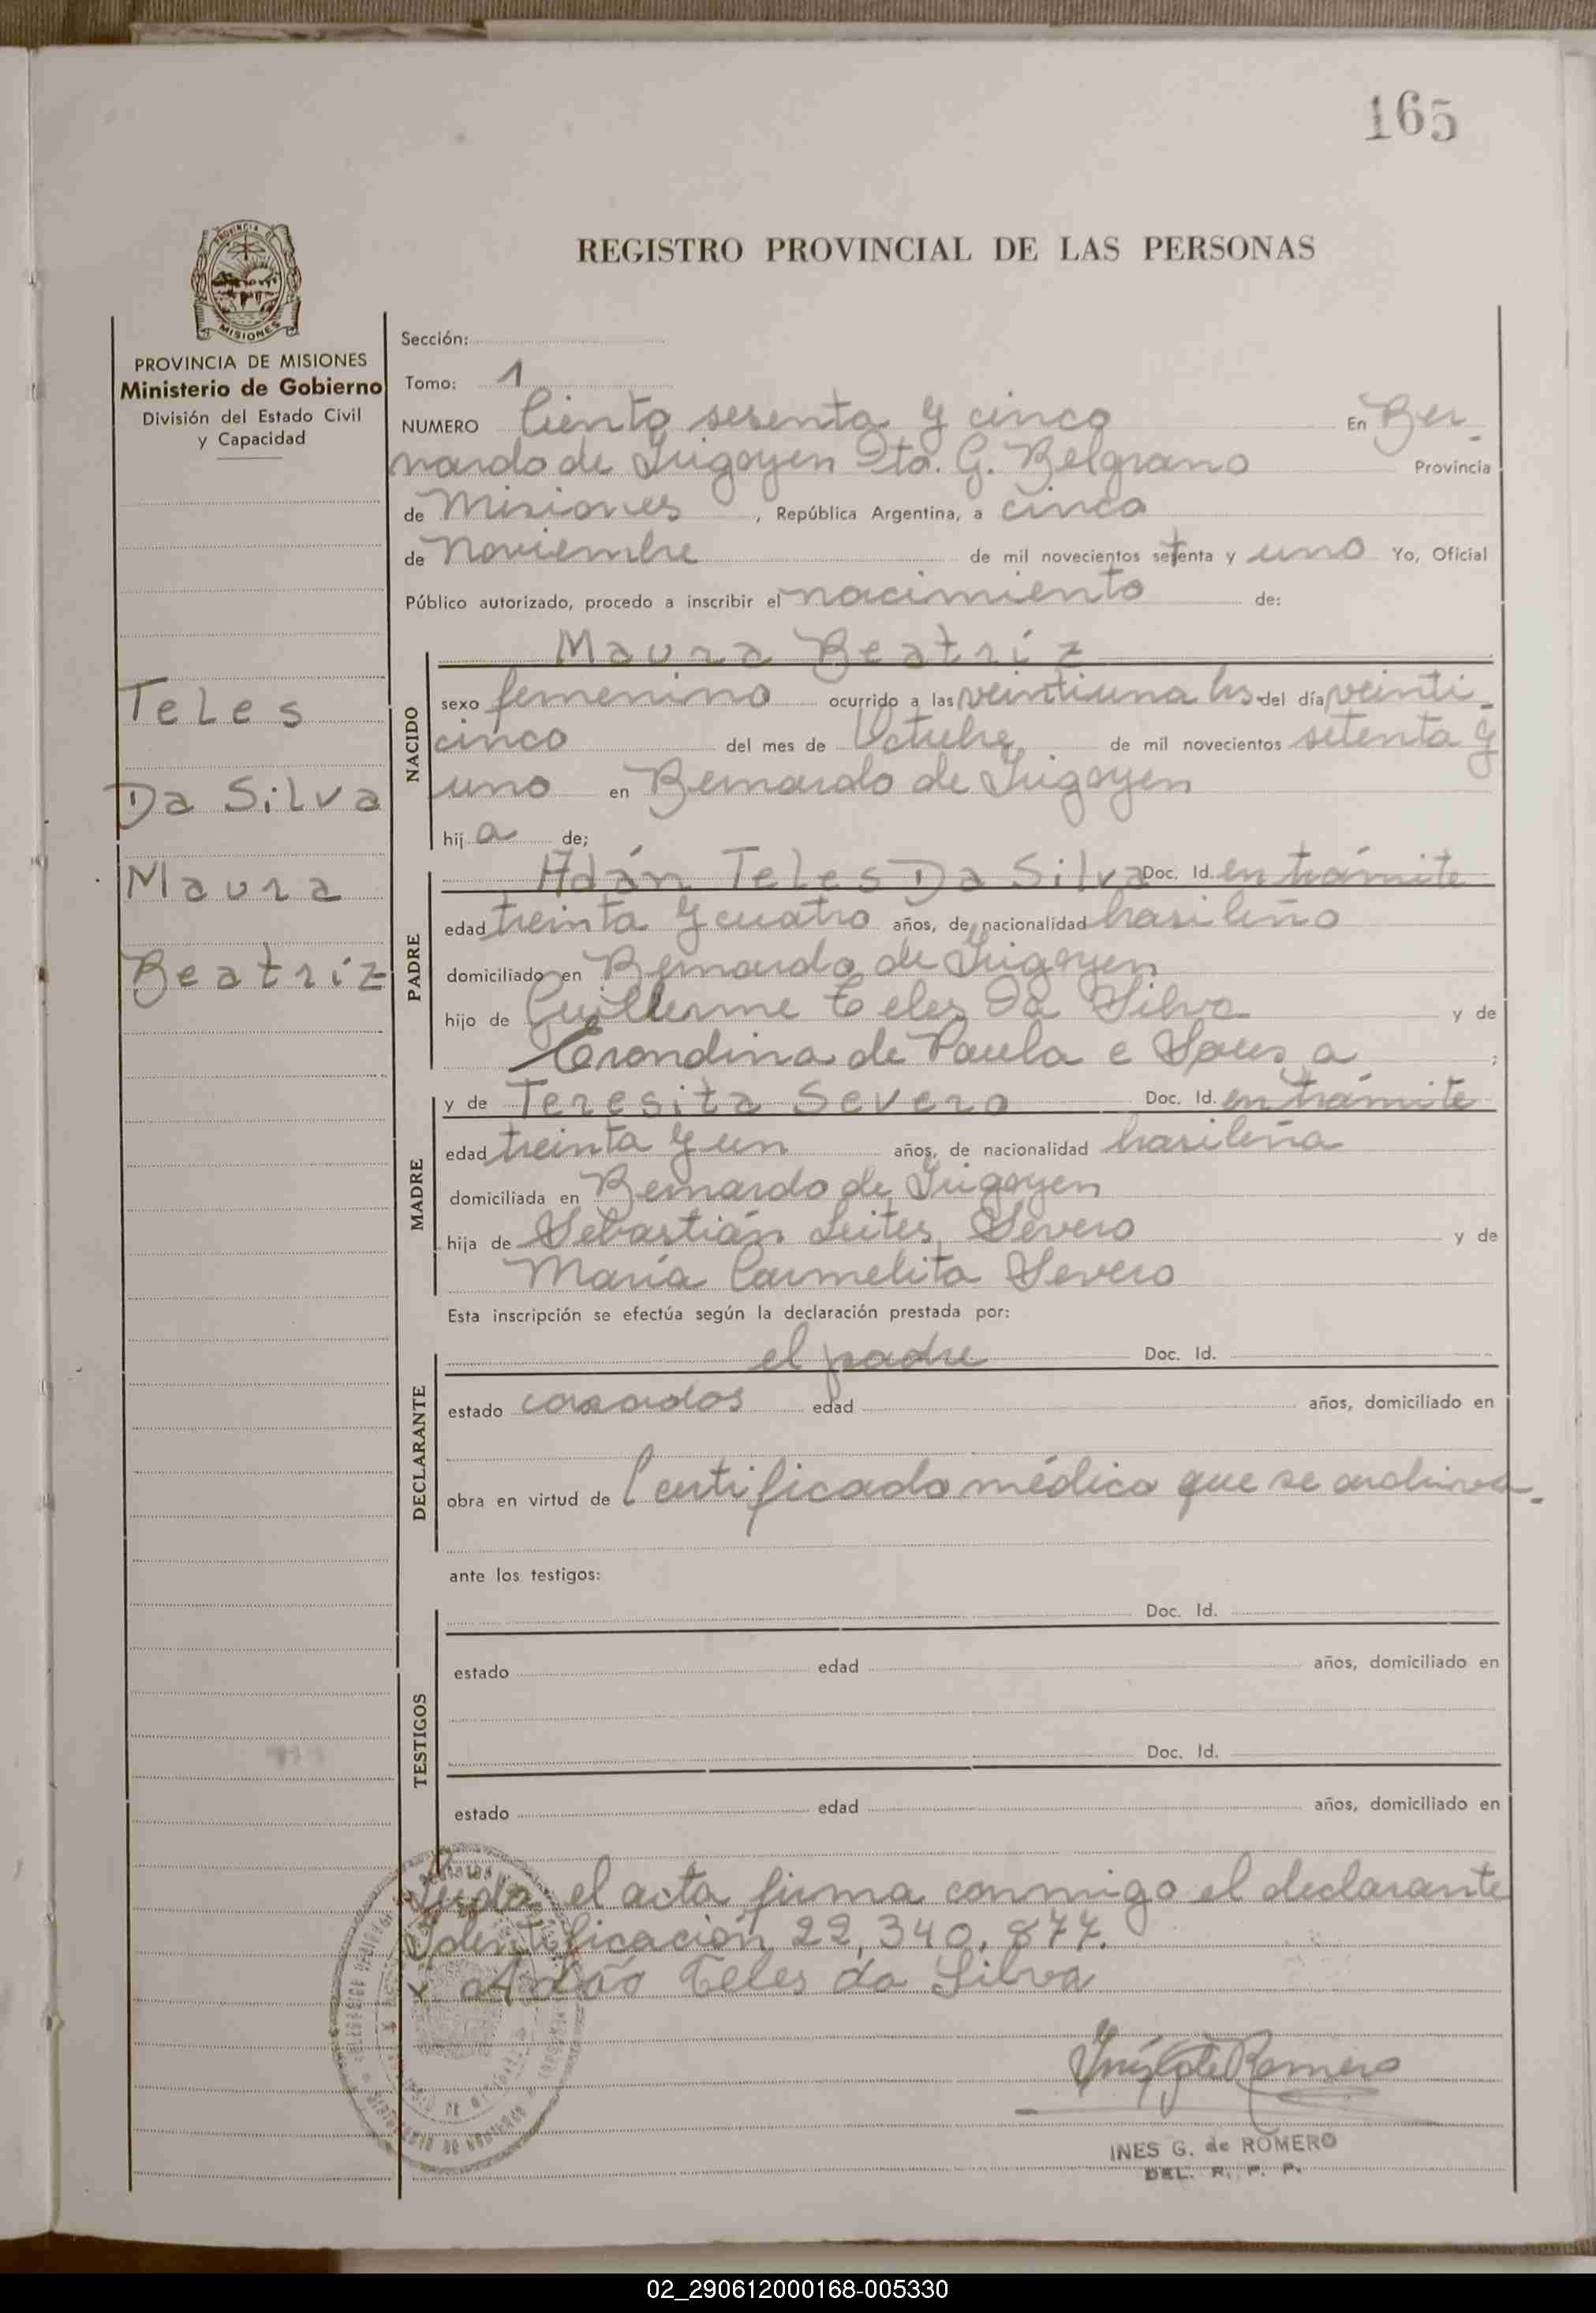 165
REGISTRO PROVINCIAL DE LAS PERSONAS
PROVINCIA DE MISIONES
Ministerio de Gobierno
División del Estado Civil
y Capacidad
Teles
Da Silva
Maura
Beatríz
Sección:
Tomo: 1
NUMERO Ciento sesenta y cinco En Ber_
nardo de Irigoyen Dto. G. Belgrano Provincia
de Misiones, República Argentina, a cinco
de Noviembre de mil novecientos setenta y uno Yo, Oficial
Público autorizado, procedo a inscribir el nacimiento de:
NACIDO
Maura Beatríz
sexo femenino ocurrido a las veintiuna hs. del día veinti_
cinco del mes de Octubre de mil novecientos setenta y
uno en Bernardo de Irigoyen
hij a de;
PADRE
Adán Teles Da Silva Doc. Id. en trámite
edad treinta y cuatro años, de nacionalidad brasileño
domiciliado en Bernardo de Irigoyen
hijo de Guillerme Teles Da Silva y de
Erondina de Paula e Sousa ;
MADRE
y de Teresita Severo Doc. Id. en trámite
edad treinta y un años, de nacionalidad brasileña
domiciliada en Bernardo de Irigoyen
hija de Sebastián Leites Severo y de
María Carmelita Severo
Esta inscripción se efectúa según la declaración prestada por:
DECLARANTE
el padre Doc. Id.
estado casados edad años, domiciliado en
obra en virtud de Certificado médico que se archiva_
ante los testigos:
TESTIGOS
Doc. Id.
estado edad años, domiciliado en
Doc. Id.
estado edad años, domiciliado en
Leída el acta firma conmigo el declarante
Identificación 22,340.877.
x Adão Teles da Silva
INES G. de ROMERO
DEL. R. P. P.
02_290612000168-005330